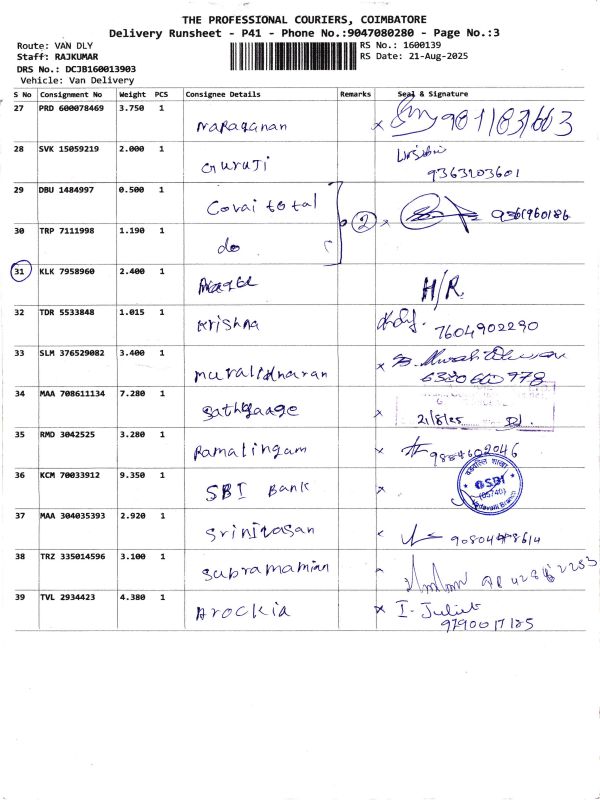 THE PROFESSIONAL COURIERS, COIMBATORE
Delivery Runsheet - P41 - Phone No.:9047080280 - Page No.:3
Route: VAN DLY
RS No.: 1600139
Staff: RAJKUMAR
RS Date: 21-Aug-2025
DRS No.: DCJB160013903
Vehicle: Van Delivery
S No Consignment No Weight PCS Consignee Details Remarks Seal & Signature
27 PRD 600078469 3.750 1 Narayanan x
28 SVK 15059219 2.000 1 Guruji 9363203601
29 DBU 1484997 0.500 1 Covai total 2 x
30 TRP 7111998 1.190 1 do
31 KLK 7958960 2.400 1 H/R
32 TDR 5533848 1.015 1 Krishna 7604902290
33 SLM 376529082 3.400 1 Muralidharan x
34 MAA 708611134 7.280 1 x 21/8/25
35 RMD 3042525 3.280 1 Ramalingam x 9884602046
36 KCM 70033912 9.350 1 SBI Bank x SBI (05740) Vadavalli Branch
37 MAA 304035393 2.920 1 Srinivasan
38 TRZ 335014596 3.100 1 Subramanian
39 TVL 2934423 4.380 1 Arockia x I. Juliet
9790017125